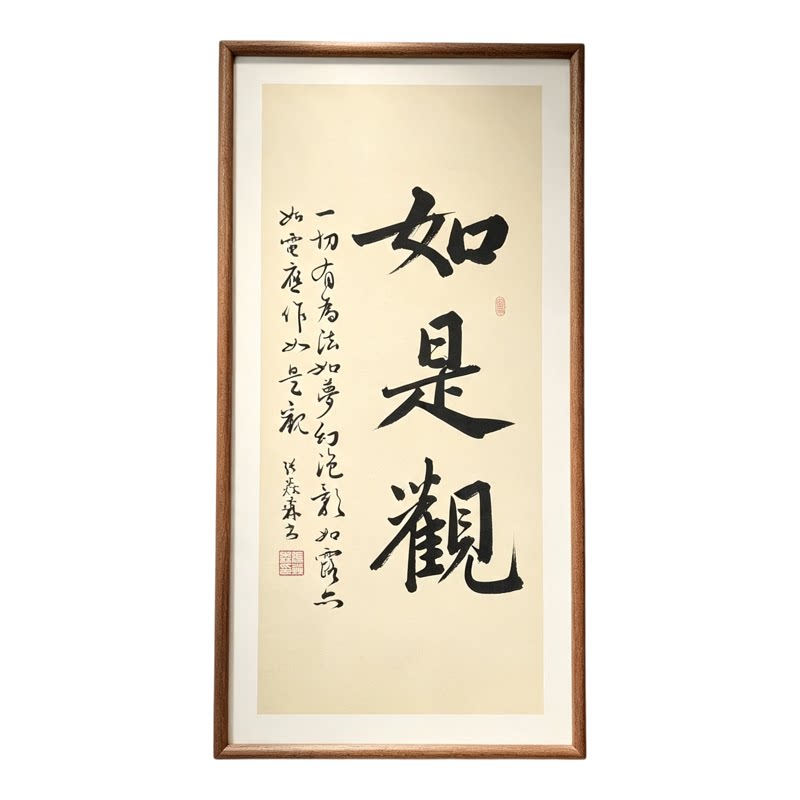 如是觀
一切有為法如夢幻泡影如露亦
如電應作如是觀